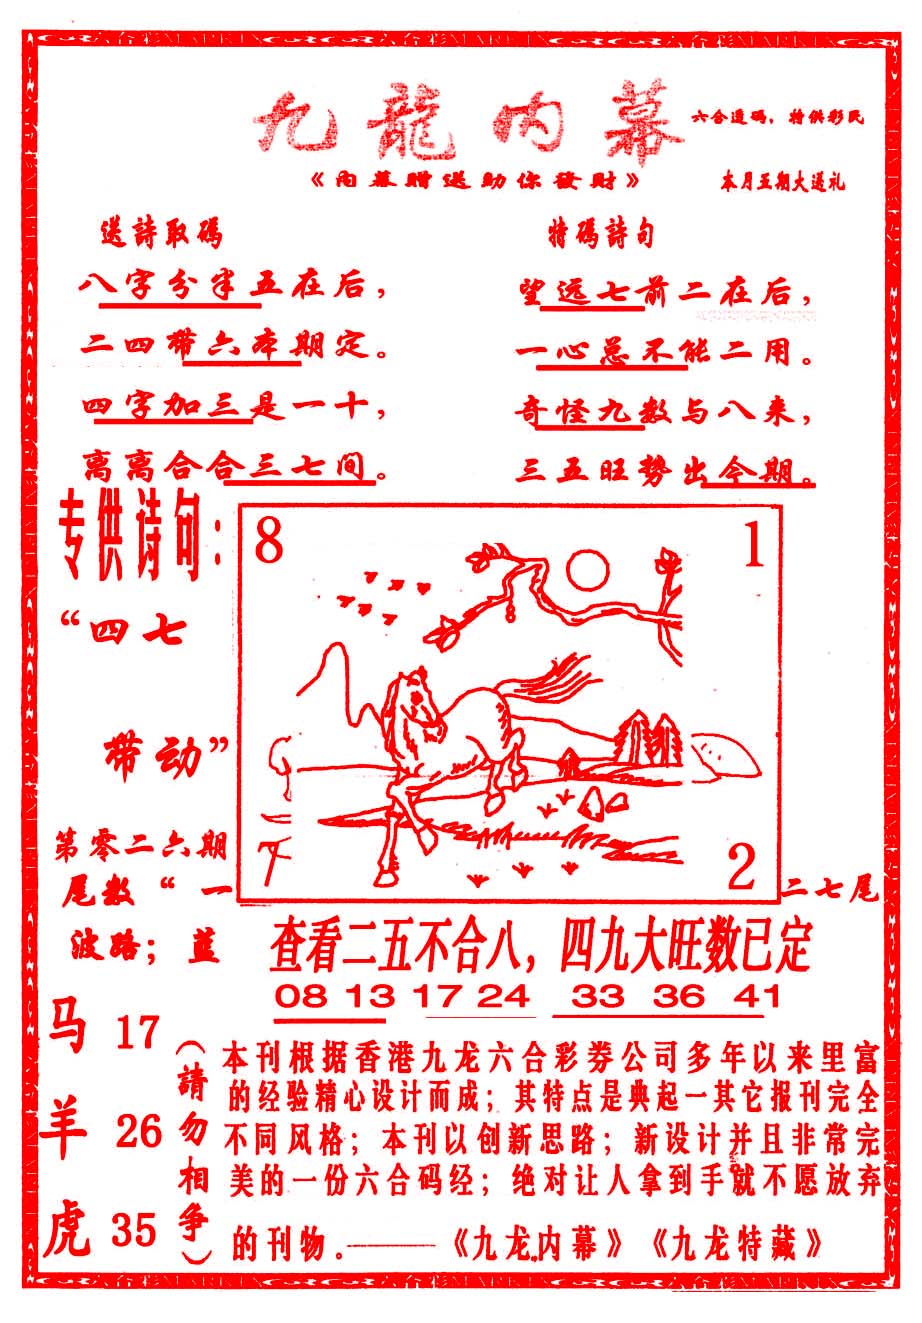 九龍内幕
六合透码，特供彩民
《内幕赠送助你發財》
本月五期大送礼
送詩取碼
八字分半五在后，
二四带六本期定。
四字加三是一十，
离离合合三七间。
特碼詩句
望远七前二在后，
一心总不能二用。
奇怪九数与八来，
三五旺势出今期。
专供诗句：
“四七
带动”
8
1
2
第零二六期
尾数“一
二七尾
波路；蓝
查看二五不合八，四九大旺数已定
08 13 17 24 33 36 41
马 17
羊 26
虎 35
（請勿相争）
本刊根据香港九龙六合彩券公司多年以来里富
的经验精心设计而成；其特点是典起一其它报刊完全
不同风格；本刊以创新思路；新设计并且非常完
美的一份六合码经；绝对让人拿到手就不愿放弃
的刊物。———《九龙内幕》《九龙特藏》